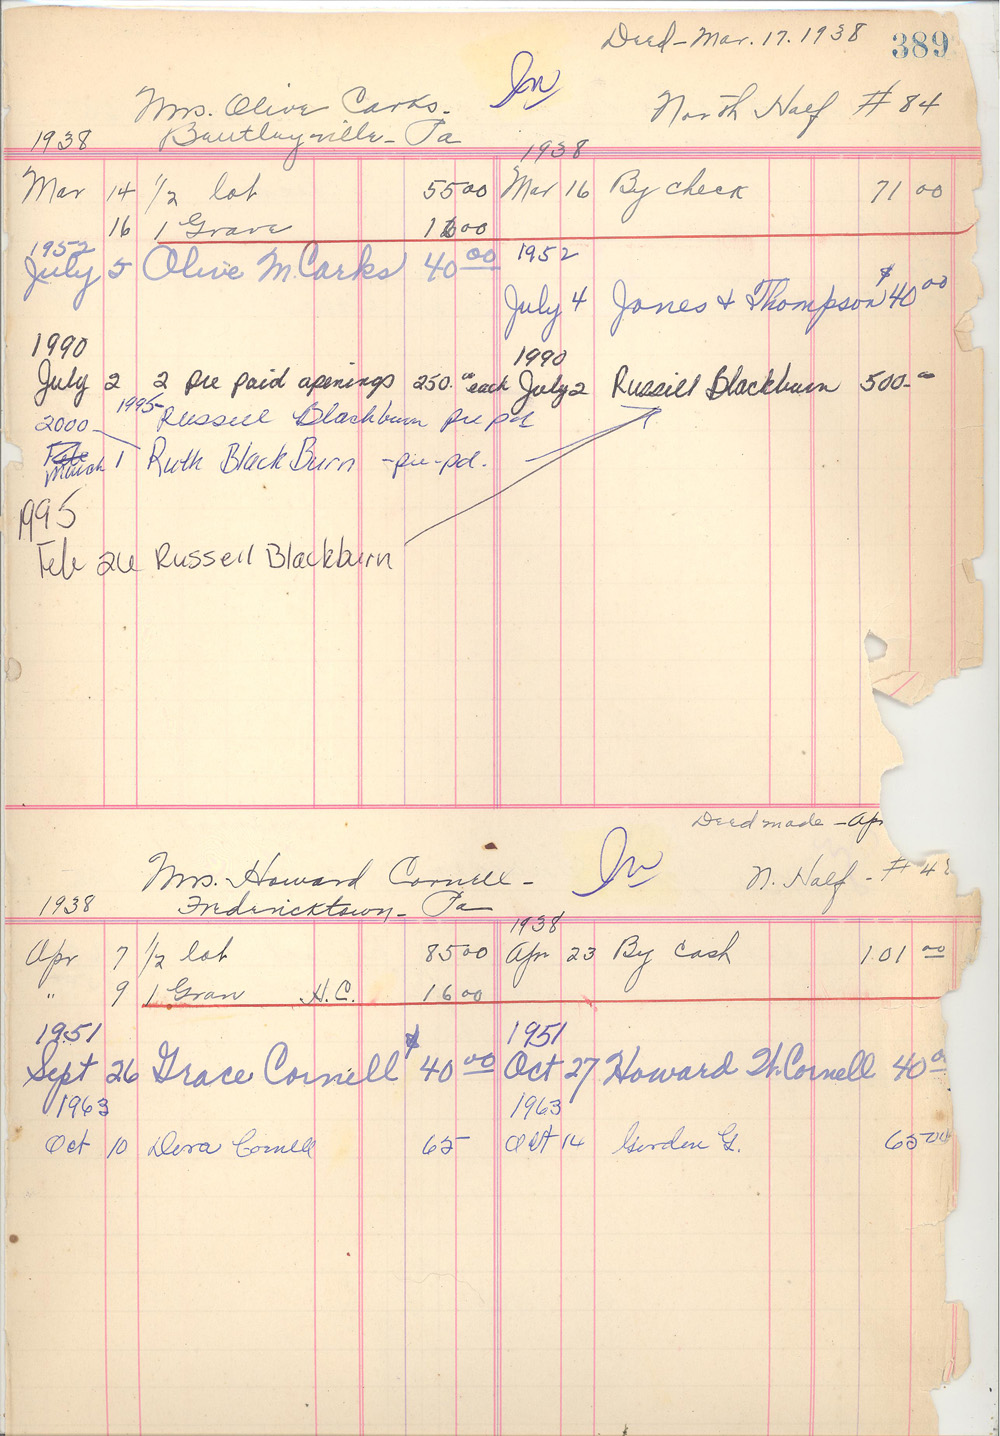 Deed - Mar. 17. 1938 389
Mrs. Olive Carks. In North Half # 84
1938 Bentleyville - Pa 1938
Mar 14 1/2 lot 55 00 Mar 16 By check 71 00
16 1 Grave 16 00
1952 1952
July 5 Olive M. Carks 40 00
July 4 Jones & Thompson $40 00
1990 1990
July 2 2 pre paid openings 250.00 each July 2 Russell Blackburn 500.00
1995 Russell Blackburn pre pd
2000
March 1 Ruth BlackBurn - pre-pd.
1995
Feb 26 Russell Blackburn
Deed made - Apr
Mrs. Howard Cornell - In N. Half - # 48
1938 Fredericktown - Pa 1938
Apr 7 1/2 lot 85 00 Apr 23 By Cash 101 00
" 9 1 Grav H.C. 16 00
1951 1951
Sept 26 Grace Cornell $40 00 Oct 27 Howard H. Cornell 40 0
1963 1963
Oct 10 Dora Cornell 65- Oct 14 Gorden G. 65 00